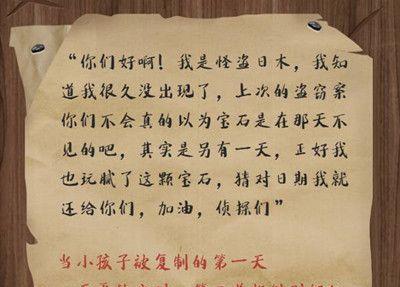 “你们好啊！我是怪盗日木，我知
道我很久没出现了，上次的盗窃案
你们不会真的以为宝石是在那天不
见的吧，其实是另有一天，正好我
也玩腻了这颗宝石，猜对日期我就
还给你们，加油，侦探们”
当小孩子被复制的第一天